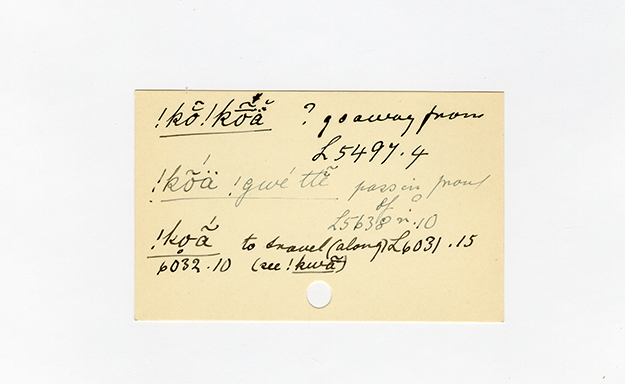 !kõ!kõä̃ ? go away from
L5497.4
!kõä !gwé ttẽ pass in front
of ?
L5638 r.10
!kọã́ to travel (along) L6031.15
6032.10 (see !kwã)